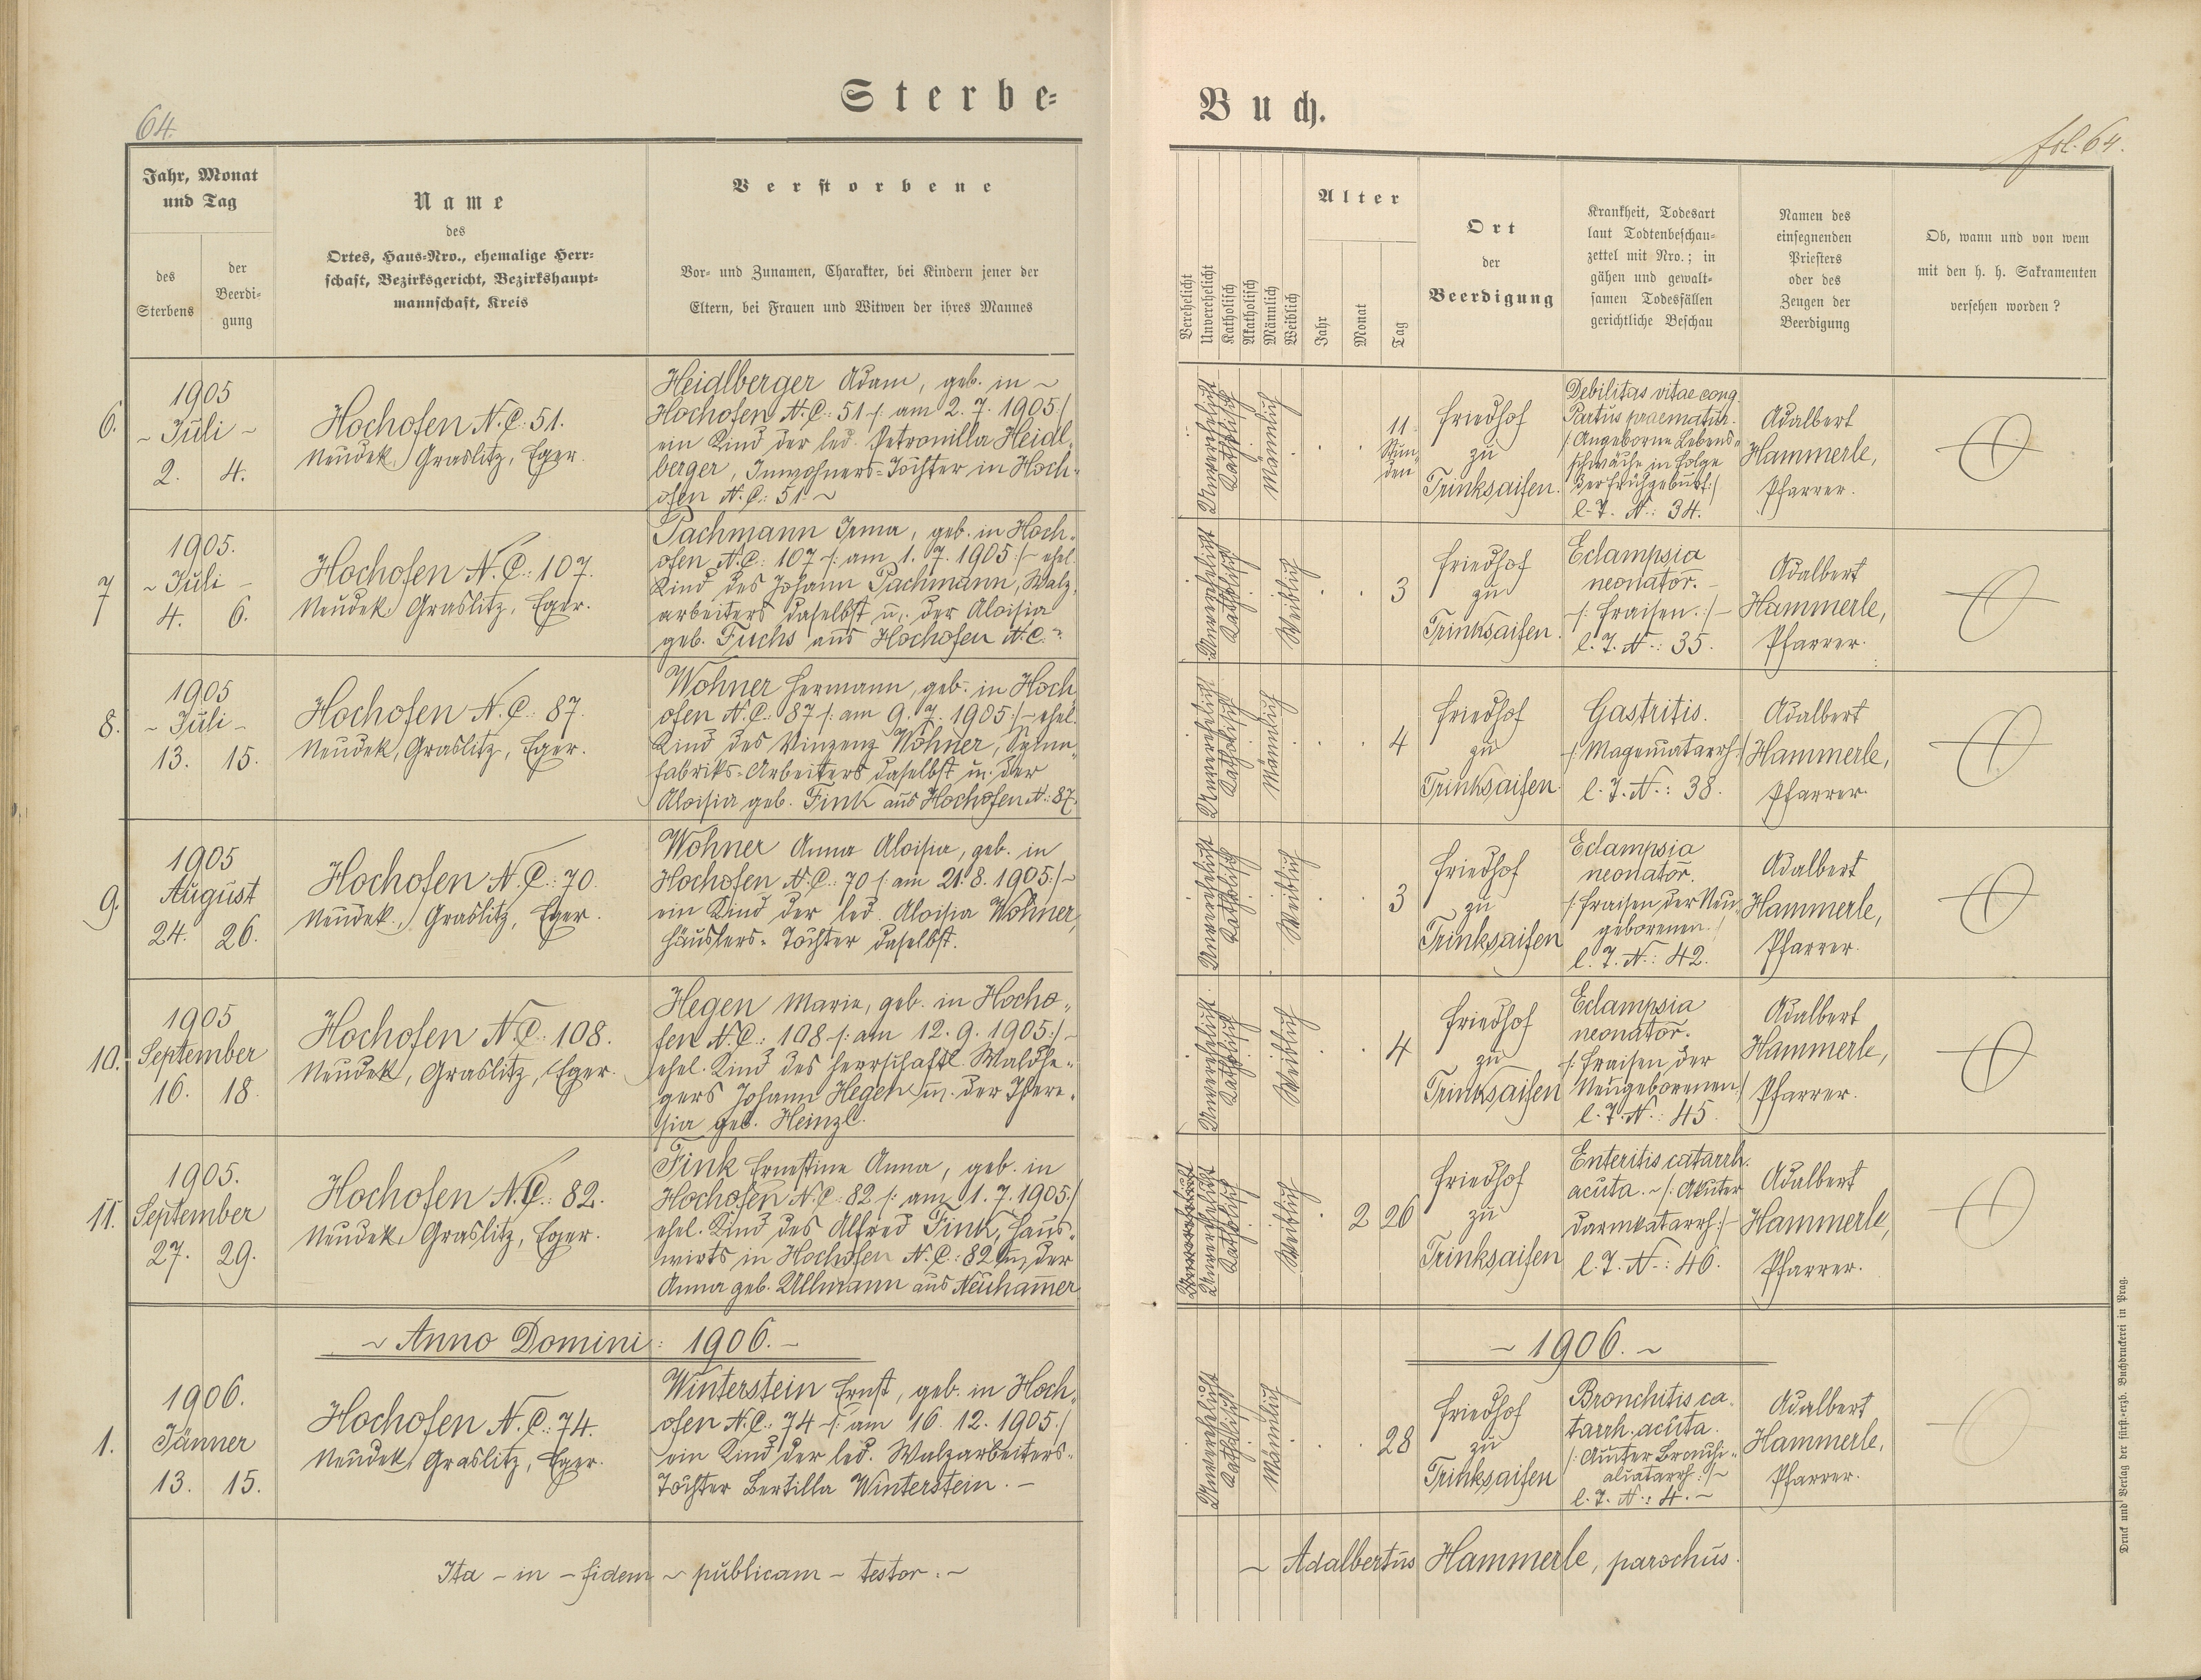 64.
Sterbe=
Jahr, Monat
und Tag
des
Sterbens
der
Beerdi=
gung
Name
des
Ortes, Haus=Nro., ehemalige Herr=
schaft, Bezirksgericht, Bezirkshaupt=
mannschaft, Kreis
Verstorbene
Vor= und Zunamen, Charakter, bei Kindern jener der
Eltern, bei Frauen und Witwen der ihres Mannes
6.
1905
~ Juli ~
2. 4.
Hochofen N.C: 51.
Neudek, Graslitz, Eger.
Heidlberger Adam, geb. in ~
Hochofen N.C: 51 /: am 2. 7. 1905:/
ein Kind der led. Petronilla Heidl=
berger, Inwohners=Tochter in Hoch=
ofen N.C.: 51 ~
7
1905.
~ Juli -
4. 6.
Hochofen N.C.: 107.
Neudek, Graslitz, Eger.
Pachmann Irma, geb. in Hoch=
ofen N.C. 107 /: am 1. 7. 1905:/ - ehel.
Kind des Johann Pachmann, Walz=
arbeiters daselbst u. der Aloisia
geb. Fuchs aus Hochofen N.C.
8.
1905
~ Juli -
13. 15.
Hochofen N.C: 87.
Neudek, Graslitz, Eger.
Wohner Hermann, geb. in Hoch
ofen N.C.: 87 /: am 9. 7. 1905:/ - ehel.
Kind des Vinzenz Wohner, Spinn=
fabriks=Arbeiters daselbst u. der
Aloisia geb. Fink aus Hochofen N.: 87.
9.
1905
August
24. 26.
Hochofen N.C.: 70.
Neudek, Graslitz, Eger.
Wohner Anna Aloisia, geb. in
Hochofen N.C.: 70 /: am 21. 8. 1905:/ -
ein Kind der led. Aloisia Wohner,
Häuslers=Tochter daselbst.
10.
1905
September
16. 18.
Hochofen N.C: 108.
Neudek, Graslitz, Eger.
Hegen Marie, geb. in Hocho=
fen N.C.: 108 /: am 12. 9. 1905:/ -
ehel. Kind des herrschaftl. Waldhe=
gers Johann Hegen u. der There=
sia geb. Heinzl.
11.
1905.
September
27. 29.
Hochofen N.C.: 82.
Neudek, Graslitz, Eger.
Fink Ernestine Anna, geb. in
Hochofen N.C: 82 /: am 1. 7. 1905:/
ehel. Kind des Alfred Fink, Haus=
wirts in Hochofen N.C.: 82 u. der
Anna geb. Ullmann aus Neuham̄er
~ Anno Domini: 1906. -
1.
1906.
Jänner
13. 15.
Hochofen N.C.: 74.
Neudek, Graslitz, Eger.
Winterstein Ernst, geb. in Hoch=
ofen N.C.: 74 /: am 16. 12. 1905:/
ein Kind der led. Walzarbeiters=
Tochter Bertilla Winterstein. -
Ita - in - fidem ~ publicam - testor: ~
Buch.
fol. 64.
Verehelicht
Unverehelicht
Katholisch
Akatholisch
Männlich
Weiblich
Alter
Jahr
Monat
Tag
Ort
der
Beerdigung
Krankheit, Todesart
laut Todtenbeschau=
zettel mit Nro.; in
gähen und gewalt=
samen Todesfällen
gerichtliche Beschau
Namen des
einsegnenden
Priesters
oder des
Zeugen der
Beerdigung
Ob, wann und von wem
mit den h. h. Sakramenten
versehen worden?
Unverehelicht
Katholisch
Männlich
11
Stun=
den
Friedhof
zu
Trinksaifen.
Debilitas vitae cong.
Partus praematur.
/: Angeborne Lebens=
schwäche in Folge
der Frühgeburt:/
l. T. N.: 34.
Adalbert
Hammerle,
Pfarrer.
Unverehelicht
Katholisch
Weiblich
3
Friedhof
zu
Trinksaifen.
Eclampsia
neonator. -
/: Fraisen.:/ -
l. T. N.: 35.
Adalbert
Hammerle,
Pfarrer.
Unverehelicht
Katholisch
Männlich
4
Friedhof
zu
Trinksaifen.
Gastritis.
/: Magenkatarrh:/
l. T. N.: 38.
Adalbert
Hammerle,
Pfarrer.
Unverehelicht
Katholisch
Weiblich
3
Friedhof
zu
Trinksaifen
Eclampsia
neonator.
/: Fraisen der Neu=
geborenen:/
l. T. N.: 42.
Adalbert
Hammerle,
Pfarrer.
Unverehelicht
Katholisch
Weiblich
4
Friedhof
zu
Trinksaifen
Eclampsia
neonator.
/: Fraisen der
Neugeborenen:/
l. T. N.: 45.
Adalbert
Hammerle,
Pfarrer.
Unverehelicht
Katholisch
Weiblich
2 26
Friedhof
zu
Trinksaifen
Enteritis catarrh.
acuta. ~ /: Akuter
Darmkatarrh:/ -
l. T. N.: 46.
Adalbert
Hammerle,
Pfarrer.
~ 1906. ~
Unverehelicht
Katholisch
Männlich
28
Friedhof
zu
Trinksaifen
Bronchitis ca=
tarrh. acuta.
/: Akuter Bronchi=
alkatarrh:/ ~
l. T. N.: 4. ~
Adalbert
Hammerle,
Pfarrer.
~ Adalbertus Hammerle, parochus.
Druck und Verlag der fürst.=erzb. Buchdruckerei in Prag.